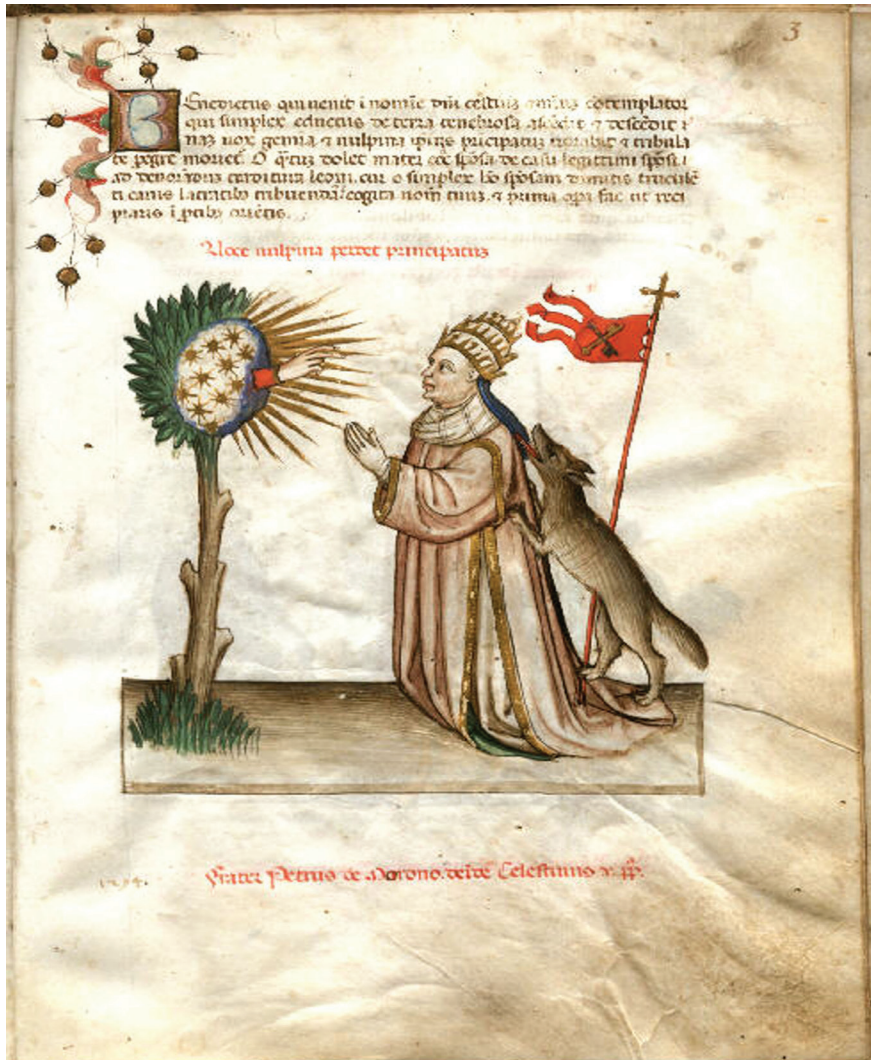 3
Benedictus qui uenit i nomie dni celestiu omiu cotemplator
qui simplex eductus de terra tenebrosa ascedit & descedit
naz uox gemia & uulpina principatus & tribula
te pegre moriet. O dolet mater sposa de casu legittimi sposi
ad deuoradus leoni. cur o simplex sposam dimittis truculē
ti canis latratibo tribuendā. cogita nom tuuz. & prima opa fac ut reci
piaris i ptibo orietis.
Uoce uulpina perdet principatuz
1294.
Frater Petrus de Morono. Celestinus v. pp.